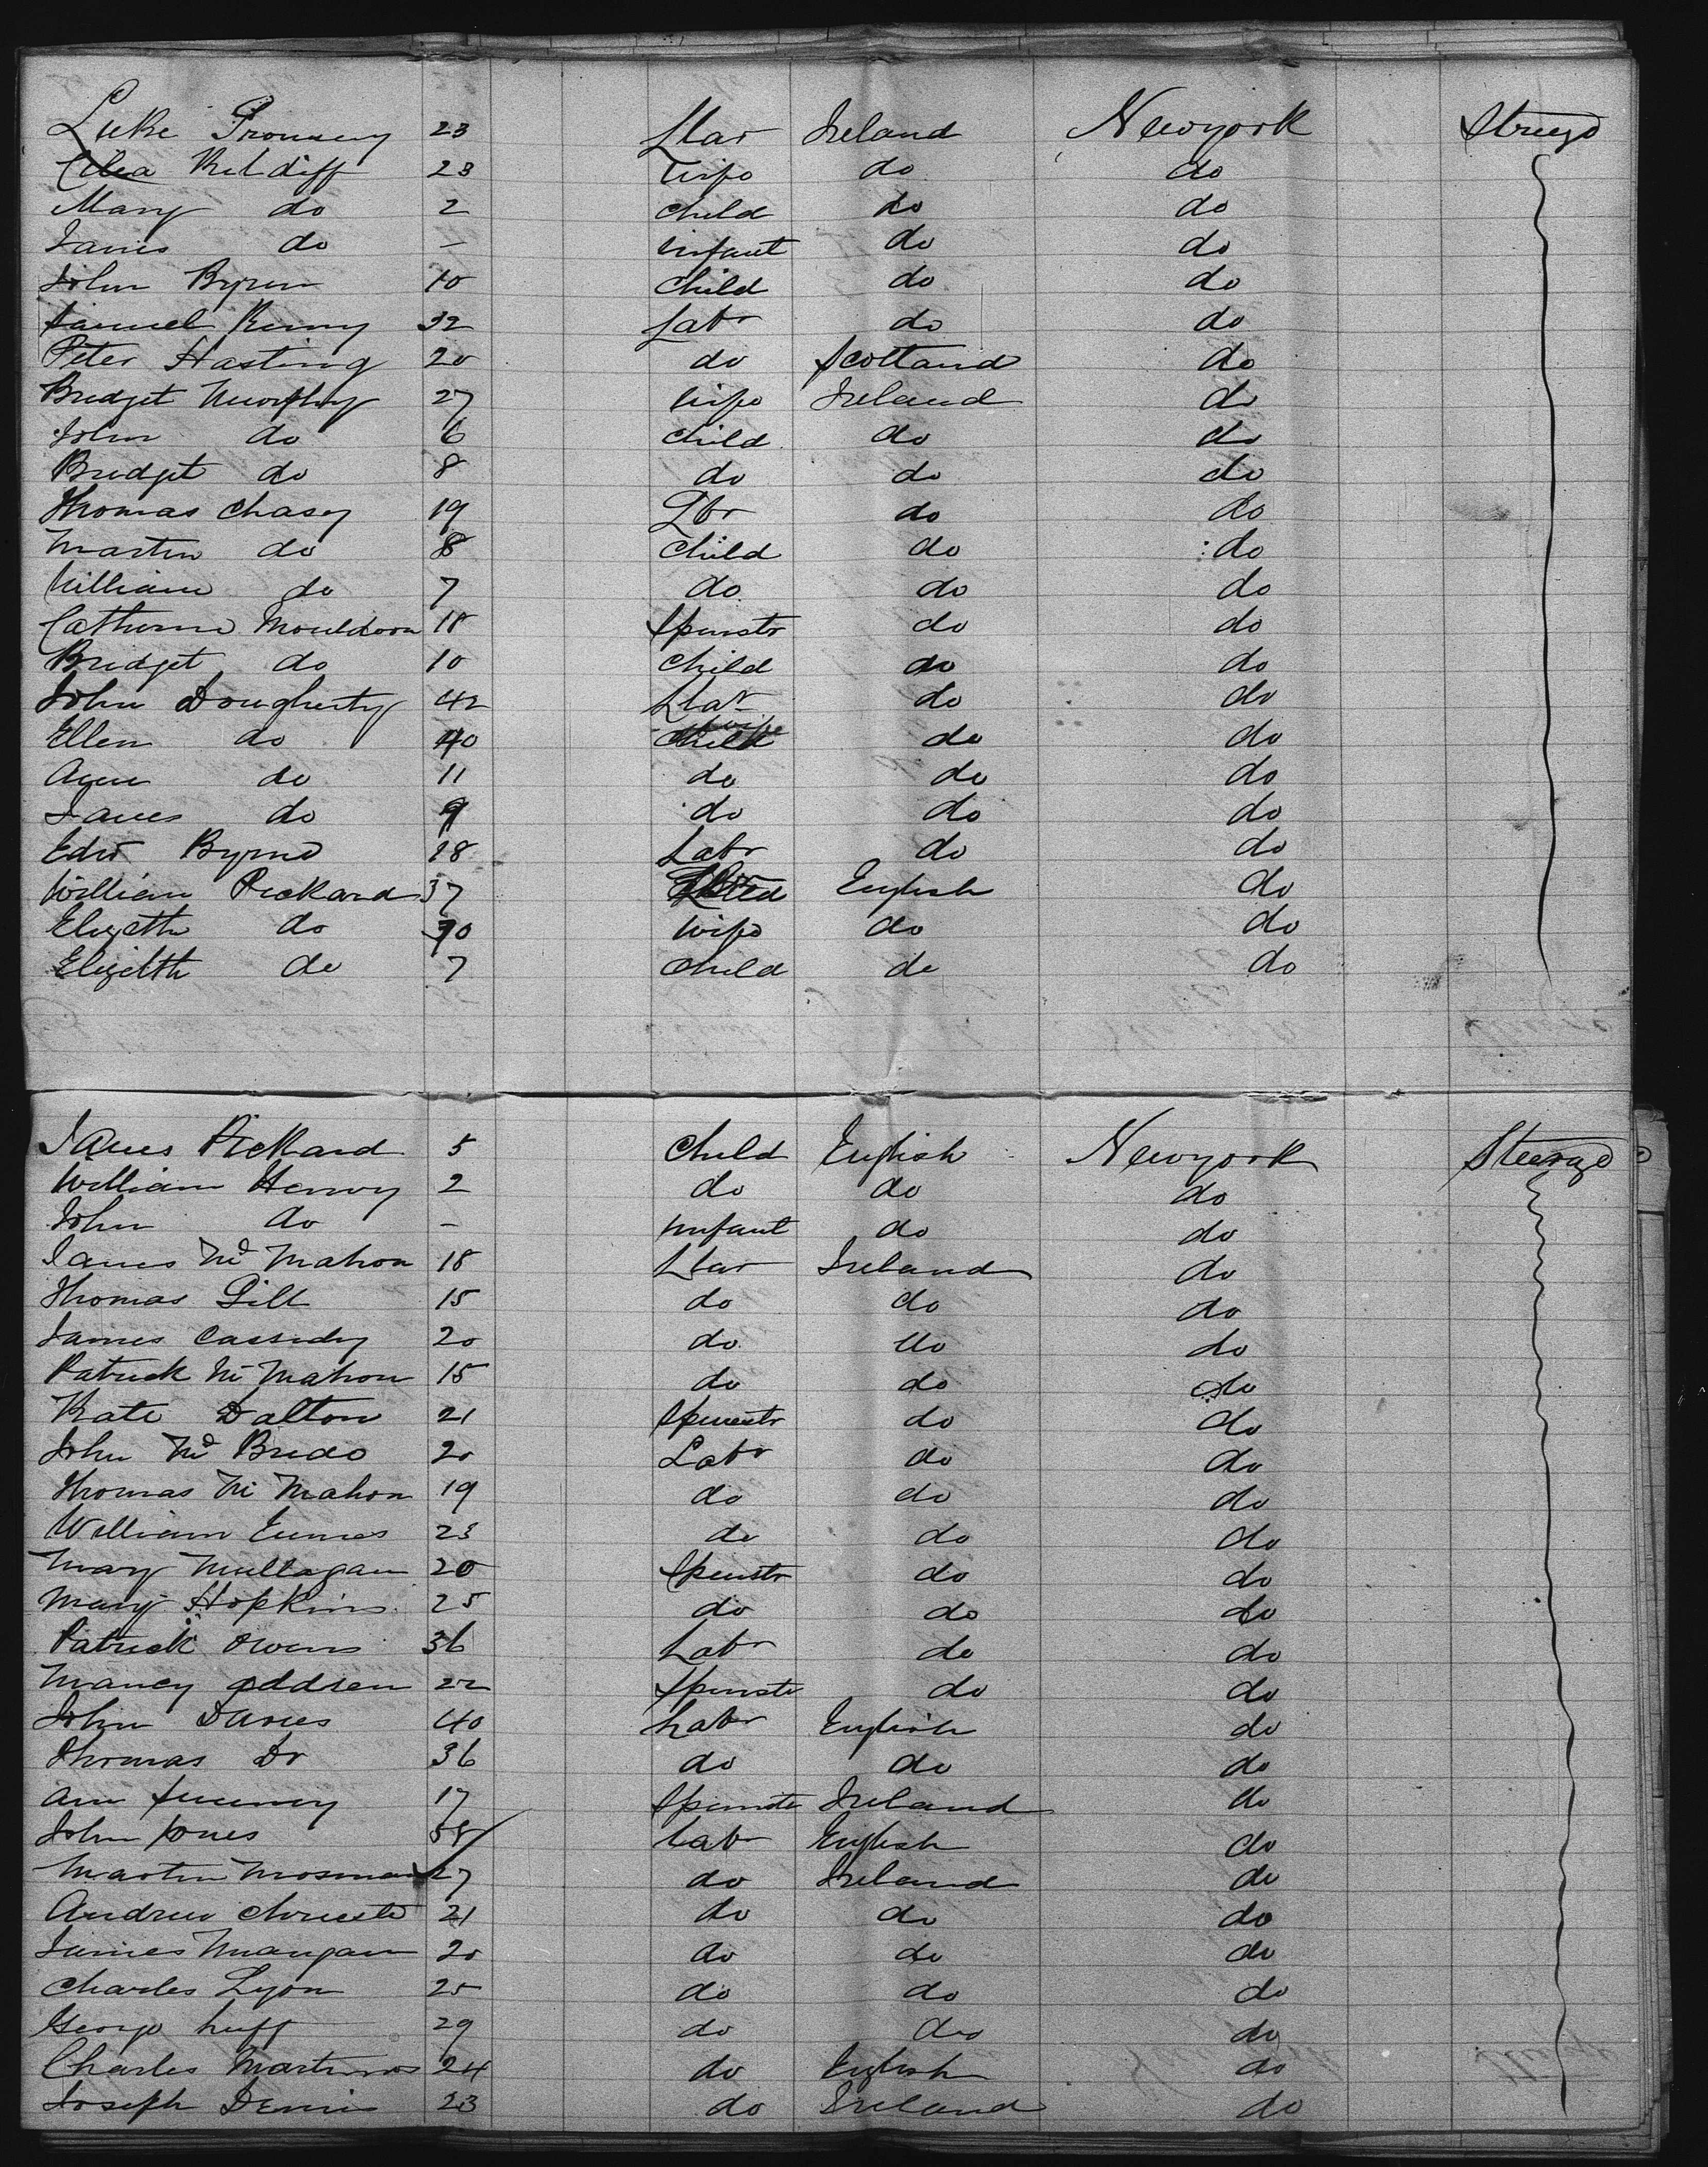 Luke 23 Lbar Ireland Newyork Steerage
Ratcliff 23 wife do do
Mary do 2 child do do
James do — infant do do
John Byrne 10 child do do
Samuel Kenny 32 Labr do do
Peter Hasting 20 do Scotland do
Bridget Murphy 27 wife Ireland do
John do 6 child do do
Bridget do 8 do do do
Thomas Chasey 19 Lbr do do
Martin do 8 child do do
William do 7 do do do
Catherine Mouldoon 18 Spinstr do do
Bridget do 10 child do do
John Dougherty 42 Lbar do do
Ellen do 40 wife do do
Anne do 11 do do do
James do 9 do do do
Edwd Byrne 18 Labr do do
William Pickard 37 English do
Elizbth do 30 wife do do
Elizbth do 7 child do do
James Pickard 5 child English Newyork Steerage
William Henry 2 do do do
John do — infant do do
James Mc Mahon 18 Lbar Ireland do
Thomas Gill 15 do do do
James Cassidy 20 do do do
Patrick Mc Mahon 15 do do do
Kate Dalton 21 Spinstr do do
John Mc Bride 20 Labr do do
Thomas Mc Mahon 19 do do do
William 23 do do do
Mary Mullagan 20 Spinstr do do
Mary Hopkins 25 do do do
Patrick Owens 36 Labr do do
Nancy 22 Spinste do do
John Davies 40 Labr English do
Thomas Do 36 do do do
Ann Sweeney 17 Spinste Ireland do
John Jones 58 Lab English do
Martin 27 do Ireland do
Andrew 21 do do do
James Mangan 20 do do do
Charles Lyon 25 do do do
George Luff 29 do do do
Charles 24 do English do
Joseph Dennis 23 do Ireland do